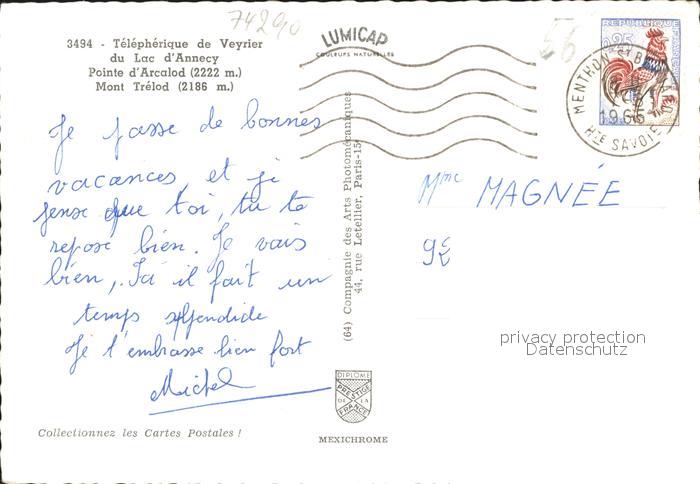 74290
3494 - Téléphérique de Veyrier
du Lac d'Annecy
Pointe d'Arcalod (2222 m.)
Mont Trélod (2186 m.)
LUMICAP
COULEURS NATURELLES
56
REPUBLIQUE FRANÇAISE
0,25
MENTHON-ST BERNARD
1966
HTE SAVOIE
Je passe de bonnes
vacances et je
pense que toi, tu te
repose bien. Je vais
bien, Ici il fait un
temps splendide
Je t'embrasse bien fort
Michel
(64) Compagnie des Arts Photomécaniques
44, rue Letellier, Paris-15e
Mme MAGNÉE
92
privacy protection
Datenschutz
DIPLOME
PRESTIGE
DE LA
FRANCE
Collectionnez les Cartes Postales !
MEXICHROME